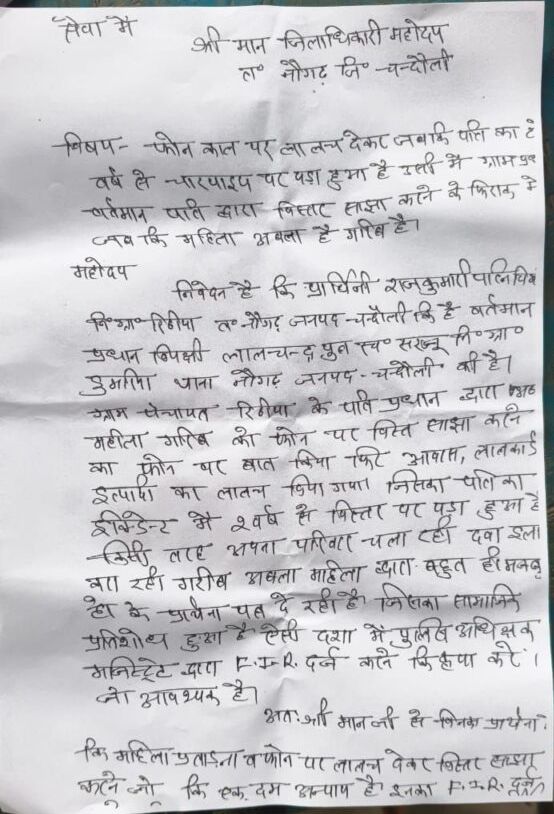 सेवा में
श्री मान जिलाधिकारी महोदय
त० नौगढ़ जि० चन्दौली
विषय - फोन काल पर लालच देकर जबकि पति का
वर्ष से चारपाइप पर पड़ा हुआ है उसी में ग्राम
वर्तमान पति द्वारा विस्तर साझा करने के फिराक में
जब कि महिला अबला है गरिब है।
महोदय
निवेदन है कि प्रार्थिनी राजकुमारी पत्नि
नि०ग्रा० रिठीया त० नौगढ़ जनपद-चन्दौली कि है वर्तमान
प्रधान विपक्षी लालचन्द पुत्र स्व० सरजू नि०ग्रा०
थाना नौगढ़ जनपद-चन्दौली की है।
ग्राम पंचायत रिठीया के पति प्रधान द्वारा
महीला गरिब को फोन पर विस्त साझा करने
का फोन पर बात किया फिर आवास, लालकार्ड
इत्यादि का लालच दिया गया जिसका पति का
२ वर्ष से विस्तर पर पड़ा हुआ है
किसी तरह अपना परिवार चला रही दवा इला
करा रही गरीब अबला महिला द्वारा बहुत ही मजबू
हो के प्रार्थना पत्र दे रही है जिसका सामाजिक
प्रतिशोध हुआ है ऐसी दशा में पुलिस अधिक्षक
मजिस्ट्रेट द्वारा F.I.R. दर्ज करने कि कृपा करें।
जो आवश्यक है।
अतः श्री मान जी से विनम्र प्रार्थना
कि महिला प्रताड़ना व फोन पर लालच देकर विस्तर साझा
करने जो कि एक दम अन्याय है इनका F.I.R. दर्ज